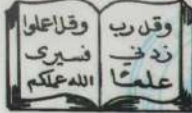 وقل رب
زدني
علمًا
وقل اعملوا
فسيرى
الله عملكم